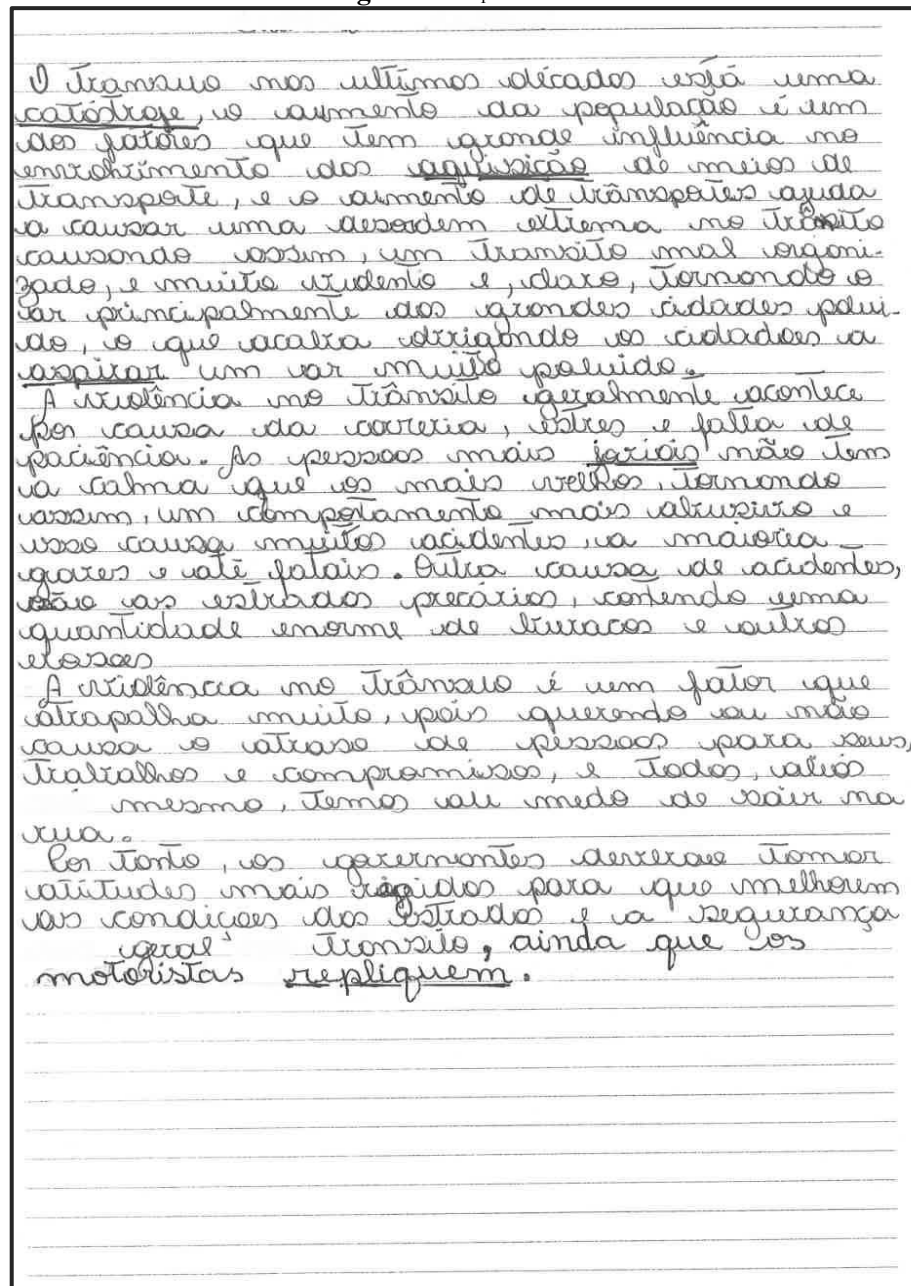 O Transito nos ultimos décadas está uma
catástrofe, o aumento da população é um
dos fatores que tem grande influência no
dos aquisição de meios de
transporte, e o aumento de trânspotes ajuda
a causar uma desordem extrema no trânsito
causando assim, um transito mal organi-
zado, e muito violento e, claro, tornando o
ar principalmente das grandes cidades polui-
do, o que acaba obrigando os cidadões a
aspirar um ar muito poluido.
A violência no trânsito geralmente acontece
por causa da correria, estres e falta de
paciência. As pessoas mais joviais não tem
a calma que os mais velhos, tornando
assim, um compotamento mais abusivo e
isso causa muitos acidentes, a maioria
graves e até fatais. Outra causa de acidentes,
são as estradas precárias, contendo uma
quantidade enorme de buracos e outros
A violência no trânsito é um fator que
atrapalha muito, pois querendo ou não
causa o atraso de pessoas para seus,
trabalhos e compromissos, e todos, aliás
mesmo, temos medo de sair na
rua.
Por tanto, os governantes deverao tomar
atitudes mais rigidas para que melhorem
as condiçoes das estradas e a segurança
geral transito, ainda que os
motoristas repliquem.